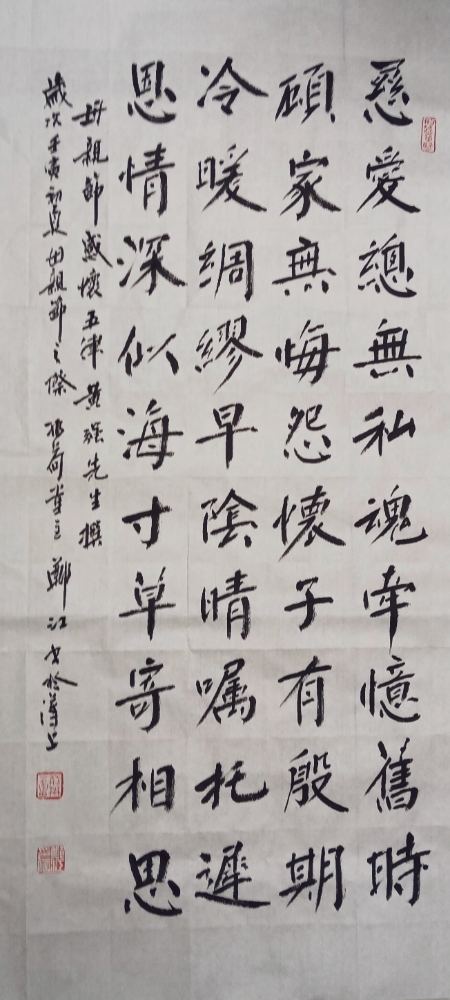 慈愛總無私魂牵憶舊時
顧家無悔怨懷子有殷期
冷暖綢繆早陰晴嘱托遲
恩情深似海寸草寄相思
母親節感懷五律黄强先生撰
歲次壬寅初夏母親節之際荷堂主鄭江書於潯上